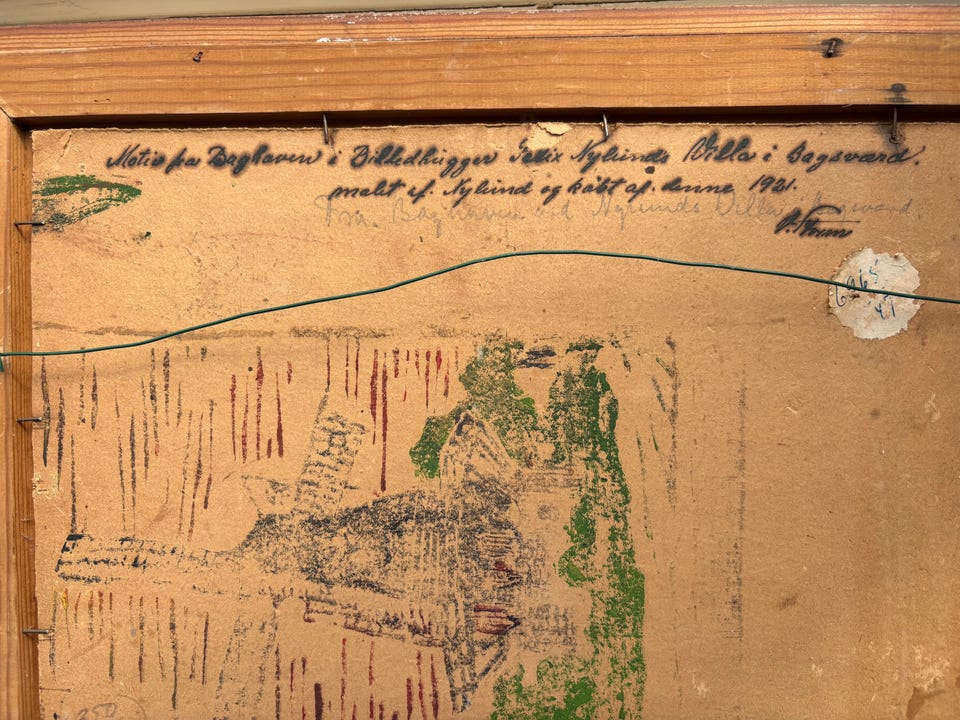 Motiv fra Baghaven i Billedhugger Felix Nylunds Villa i Bagsværd.
malet af. Nylund og købt af. denne 1921.
Fra Baghaven ved Nylunds Villa i Bagsværd
6965
47
250